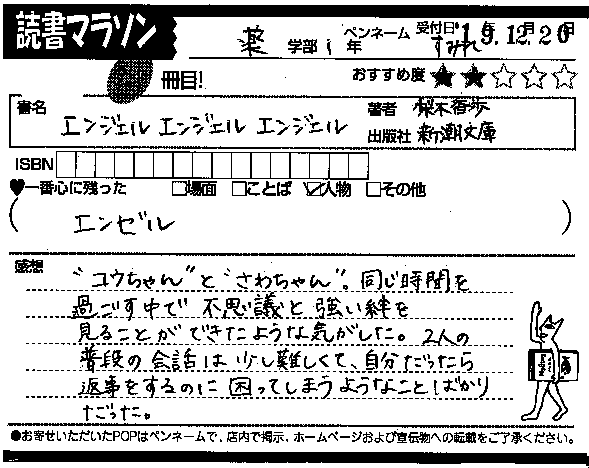 読書マラソン
薬 学部 1 年 ペンネーム すみれ 受付日 '19.12.20
冊目! おすすめ度 ★★☆☆☆
書名 エンジェル エンジェル エンジェル
著者 梨木香歩
出版社 新潮文庫
ISBN
♥一番心に残った □場面 □ことば ☑人物 □その他
( エンゼル )
感想
"コウちゃん"と"さわちゃん"。同じ時間を
過ごす中で 不思議と 強い絆を
見ることができたような気がした。2人の
普段の会話は少し難しくて、自分だったら
返事をするのに 困ってしまうようなことばかり
だった。
●お寄せいただいたPOPはペンネームで、店内で掲示、ホームページおよび宣伝物への転載をご了承ください。